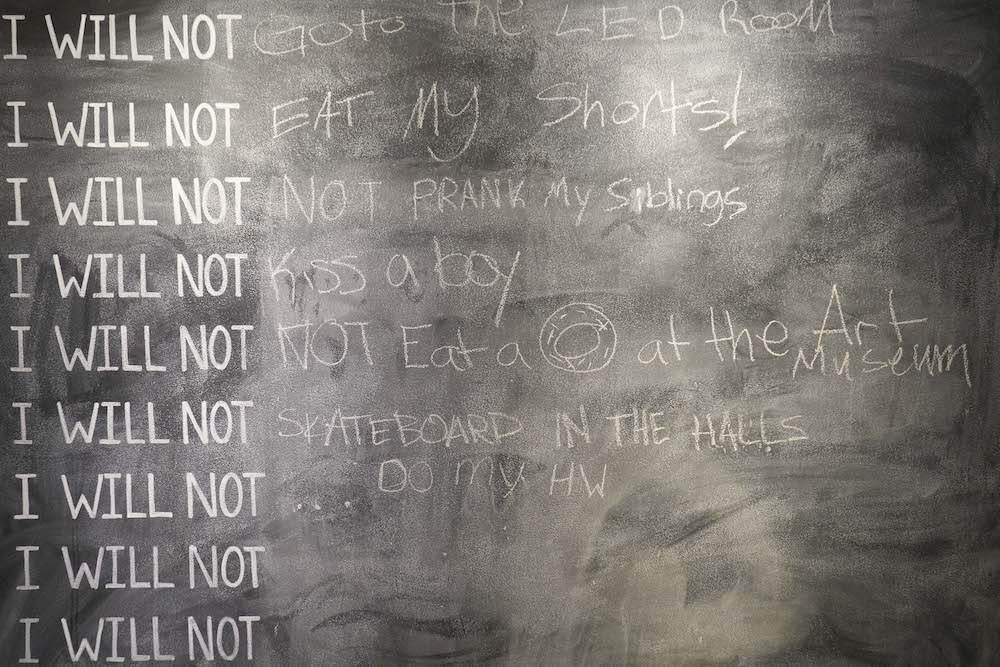 I WILL NOT Go to the LED Room
I WILL NOT EAT MY Shorts!
I WILL NOT NOT PRANK My Siblings
I WILL NOT Kiss a boy
I WILL NOT NOT Eat a at the Art Museum
I WILL NOT SKATEBOARD IN THE HALLS
I WILL NOT .... DO MY HW
I WILL NOT
I WILL NOT